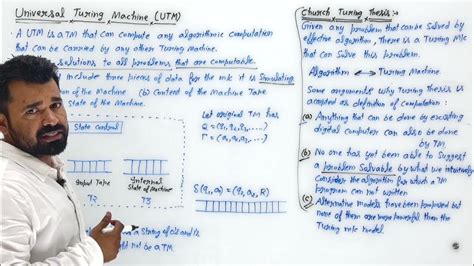 Universal Turing Machine (UTM)
• A UTM is a TM that can compute any algorithmic computation
that can be carried by any other Turing Machine.
solutions to all problems that are computable.
include three pieces of data for the m/c it is Simulating
of the Machine (b) Content of the Machine Tape
State of the Machine.
State Control
Input Tape
T2
Internal
State of Machine
T3
Let original TM has
Q = {q1, q2, ....}
δ(q2, a) = (q1, a2, R)
a string of 0's and 1's
not be a TM
Church Turing Thesis:-
Given any problem that can be solved by
effective algorithm, There is a Turing M/c
that can solve this problem.
Algorithm ↔ Turing Machine
Some arguments why Turing Thesis is
accepted as definition of computation:
(a) Anything that can be done by existing
digital Computer can also be done
by TM.
(b) No one has yet been able to suggest
a problem Solvable by what we intuitively
Consider the algorithm for which a TM
program can not written
(c) Alternative models have been proposed but
none of them are more powerful than the
Turing m/c model.